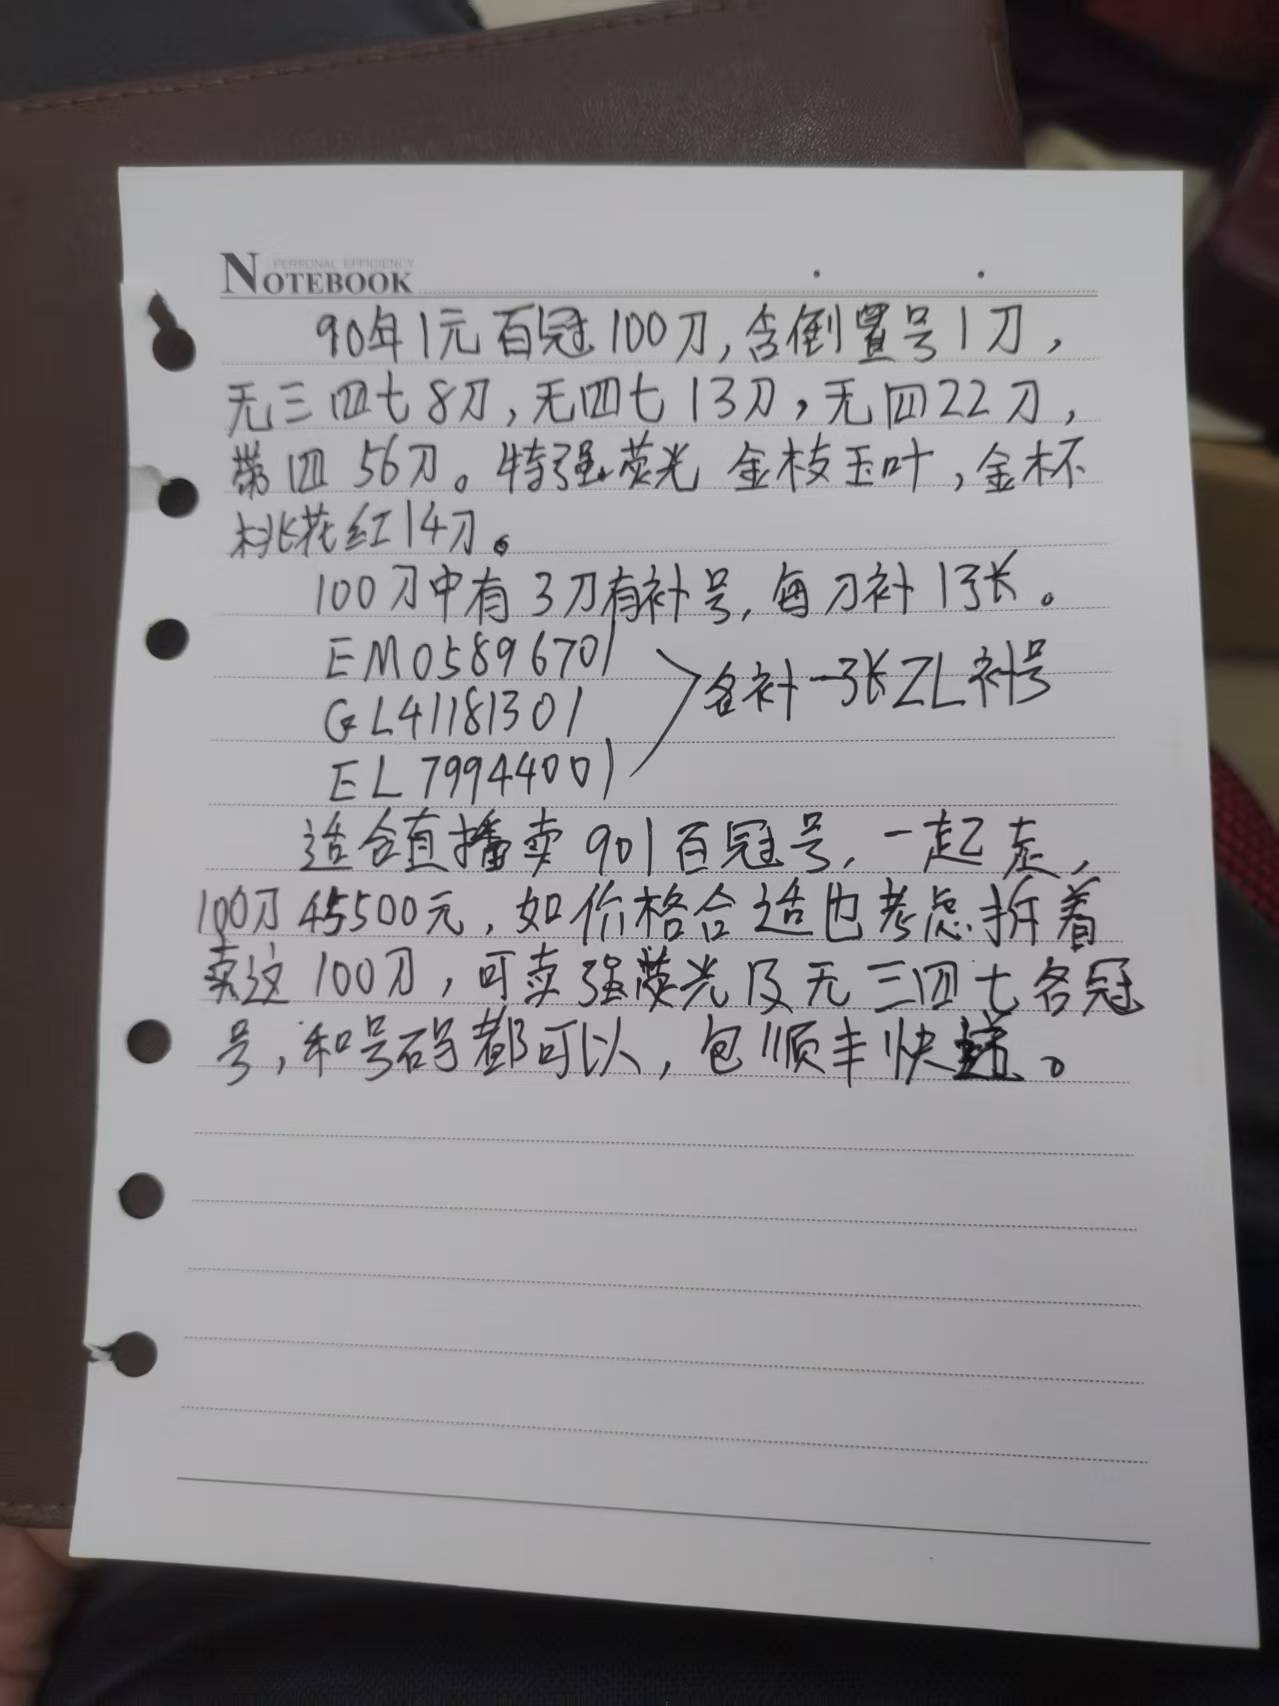 PERSONAL EFFICIENCY
NOTEBOOK
90年1元百冠100刀,含倒置号1刀,
无三四七8刀,无四七13刀,无四22刀,
带四56刀。特强荧光 金枝玉叶,金杯
桃花红14刀。
100刀中有3刀有补号,每刀补1张。
EM05896701
GL41181301
EL79944001
各补一张ZL补号
适合直播卖901百冠号,一起走,
100刀45500元,如价格合适也考虑拆着
卖这100刀,可卖强荧光及无三四七各冠
号,和号码都可以,包顺丰快递。